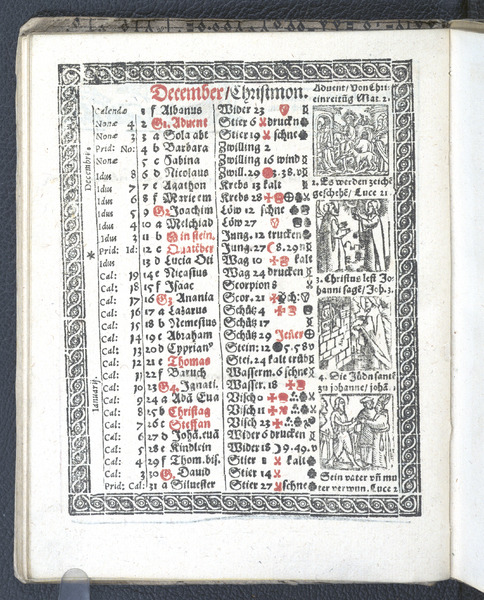 December/Christmon.
Calendæ 1 f Albanus Wider 23
Nonæ 4 2 G1. Advent Stier 6 druckn
Nonæ 3 3 a Sola abt Stier 19 schne
Prid: No: 4 b Barbara Zwilling 2
Nonæ 5 c Sabina Zwilling 16 wind
Idus 8 6 d Nicolaus Zwill. 29 3.38.v
Idus 7 7 e Agathon Krebs 13 kalt
Idus 6 8 f Marie em Krebs 28
Idus 5 9 G2 Joachim Löw 12 schne
Idus 4 10 a Melchiad Löw 27
Idus 3 11 b Jung. 12 trucken
Prid: Id: 12 c Jung. 27 8.29n
Idus 13 d Lucia Oti Wag 10 kalt
Cal: 19 14 e Nicasius Wag 24 drucken
Cal: 18 15 f Isaac Scorpion 8
Cal: 17 16 G3 Anania Scor. 21
Cal: 16 17 a Lazarus Schütz 4
Cal: 15 18 b Nemesius Schütz 17
Cal: 14 19 c Abraham Schütz 29
Cal: 13 20 d Cyprianꝰ Stein: 12 5.58v
Cal: 12 21 e Thomas Stei. 24 kalt trüb
Cal: 11 22 f Baruch Wasserm. 6 schne
Cal: 10 23 G4. Ignati. Wasser. 18
Cal: 9 24 a Adā Eua Visch 0
Cal: 8 25 b Christag Visch 11
Cal: 7 26 c Steffan Visch 23
Cal: 6 27 d Johā. euā Wider 6 drucken
Cal: 5 28 e Kindlein Wider 18 9.49.v
Cal: 4 29 f Thom. bis. Stier 1 kalt
Cal: 3 30 G. Dauid Stier 14
Prid: Cal: 31 a Siluester Stier 27 schne
Decembris.
*
Ianuarij.
Advent/Von Chri
einreitūg Mat. 2.
2. Es werden zeichē
geschehē/ Luce 21
3. Christus lest Jo-
hanni sagē/ Joh. 3.
4. Die Jüdn sant
zu johanne/ johā. 1
Sein vater vñ mu
ter verwun. Luce 2